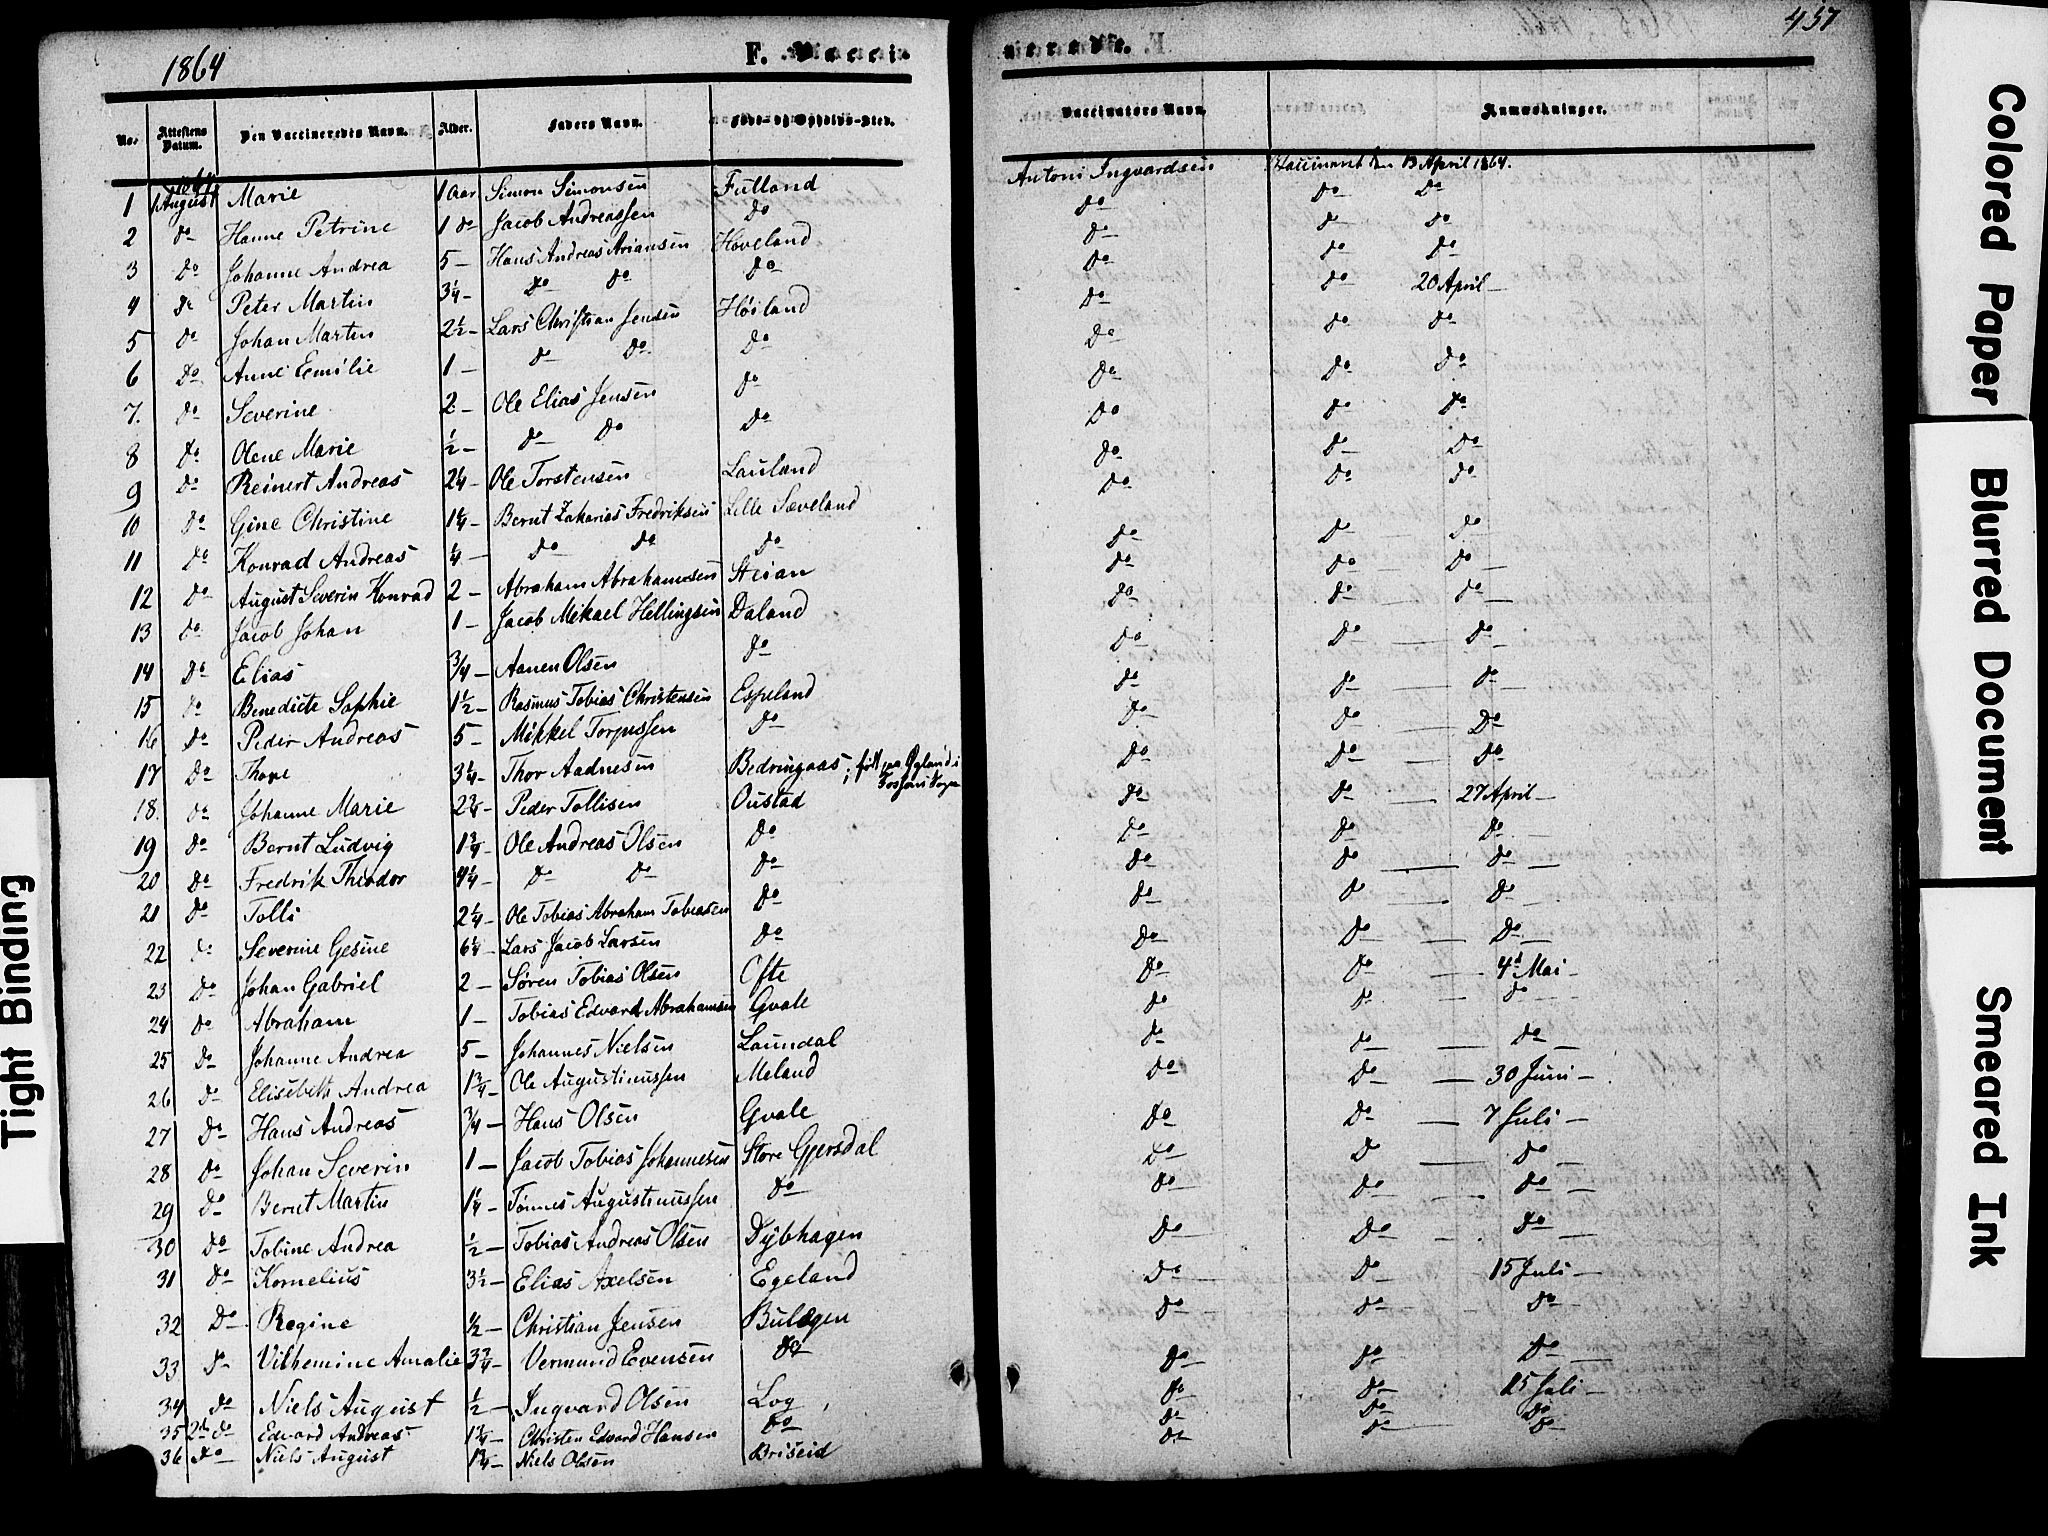 1864
F. Vacci-
nerede.
437
No.
Attestens Datum.
Den Vaccineredes Navn.
Alder.
Faders Navn.
Føde- og Opholds-Sted.
Vaccinators Navn.
Anmærkninger.
1 1 August 1864 Marie 1 Aar Simon Simonsen Fuland Antoni Ingvardsen Vaccineret den 13 April 1864.
2 do Hanne Petrine 1 do Jacob Andreassen do do do do
3 do Johanne Andrea 5 – Hans Andreas Ariansen Høveland do do do
4 do Peter Martin 3¼ – do do do do do do
5 do Johan Martin 2½ – Lars Christian Jensen Høiland do do 20 April –
6 do Anne Emilie 1 – do do do do do do
7. do Severine 2 – Ole Elias Jensen do do do do
8 do Olene Marie ½ – do do do do do do
9 do Reinert Andreas 2¼ – Ole Torstensen Lauland do do do
10 do Gine Christine 1¼ – Bernt Zakarias Fredriksen Lille Sæveland do do do
11 do Konrad Andreas ¼ – do do do do do do
12 do August Severin Konrad 2 – Abraham Abrahamsen Steian do do do
13 do Jacob Johan 1 – Jacob Mikael Hellingsen Daland do do do
14 do Elias ¾ – Aanen Olsen do do do do
15 do Benedicte Sophie 1½ – Rasmus Tobias Christensen Espeland do do do
16 do Peder Andreas 5 – Mikkel Torjussen do do do do
17 do Thore 3¼ – Thor Aadnesen Bedringaas; født paa Øgland i do do do
18. do Johanne Marie 2¾ – Peder Tollisen Oustad do do 27 April –
19 do Bernt Ludvig 1¾ – Ole Andreas Olsen do do do do
20 do Fredrik Theodor 4¼ – do do do do do do
21 do Tolli 2¼ – Ole Tobias Abraham Tobiasen do do do do
22 do Severine Gesine 6¼ – Lars Jacob Larsen do do do do
23 do Johan Gabriel 2 – Søren Tobias Olsen Ofte do do 4d Mai –
24 do Abraham 1 – Tobias Edvard Abrahamsen Gvale do do do
25 do Johanne Andrea 5 – Johannes Nielsen Laundal do do do
26 do Elisabeth Andrea 1¾ – Ole Augustinussen Meland do do 30 Juni –
27 do Hans Andreas ¾ – Hans Olsen Gvale do do 7 Juli –
28 do Johan Severin 1 – Jacob Tobias Johannesen Store Gjersdal do do do
29 do Bernt Martin 1¼ – Tønnes Augustinussen do do do do
30 do Tobine Andrea ½ – Tobias Andreas Olsen Dybhagen do do do
31 do Kornelius 3½ – Elias Axelsen Egeland do do 15 Juli –
32 do Regine ½ – Christian Jensen Bulægen do do do
33 do Vilhemine Amalie 3¾ – Vermund Evensen do do do do
34 do Niels August ½ – Ingvard Olsen Log do do 15 Juli –
35 2 do Edvard Andreas 1¾ – Christen Edvard Hansen do do do do
36 do Niels August 1¾ – Niels Olsen Briseid do do do
Colored Paper
Blurred Document
Smeared Ink
Tight Binding